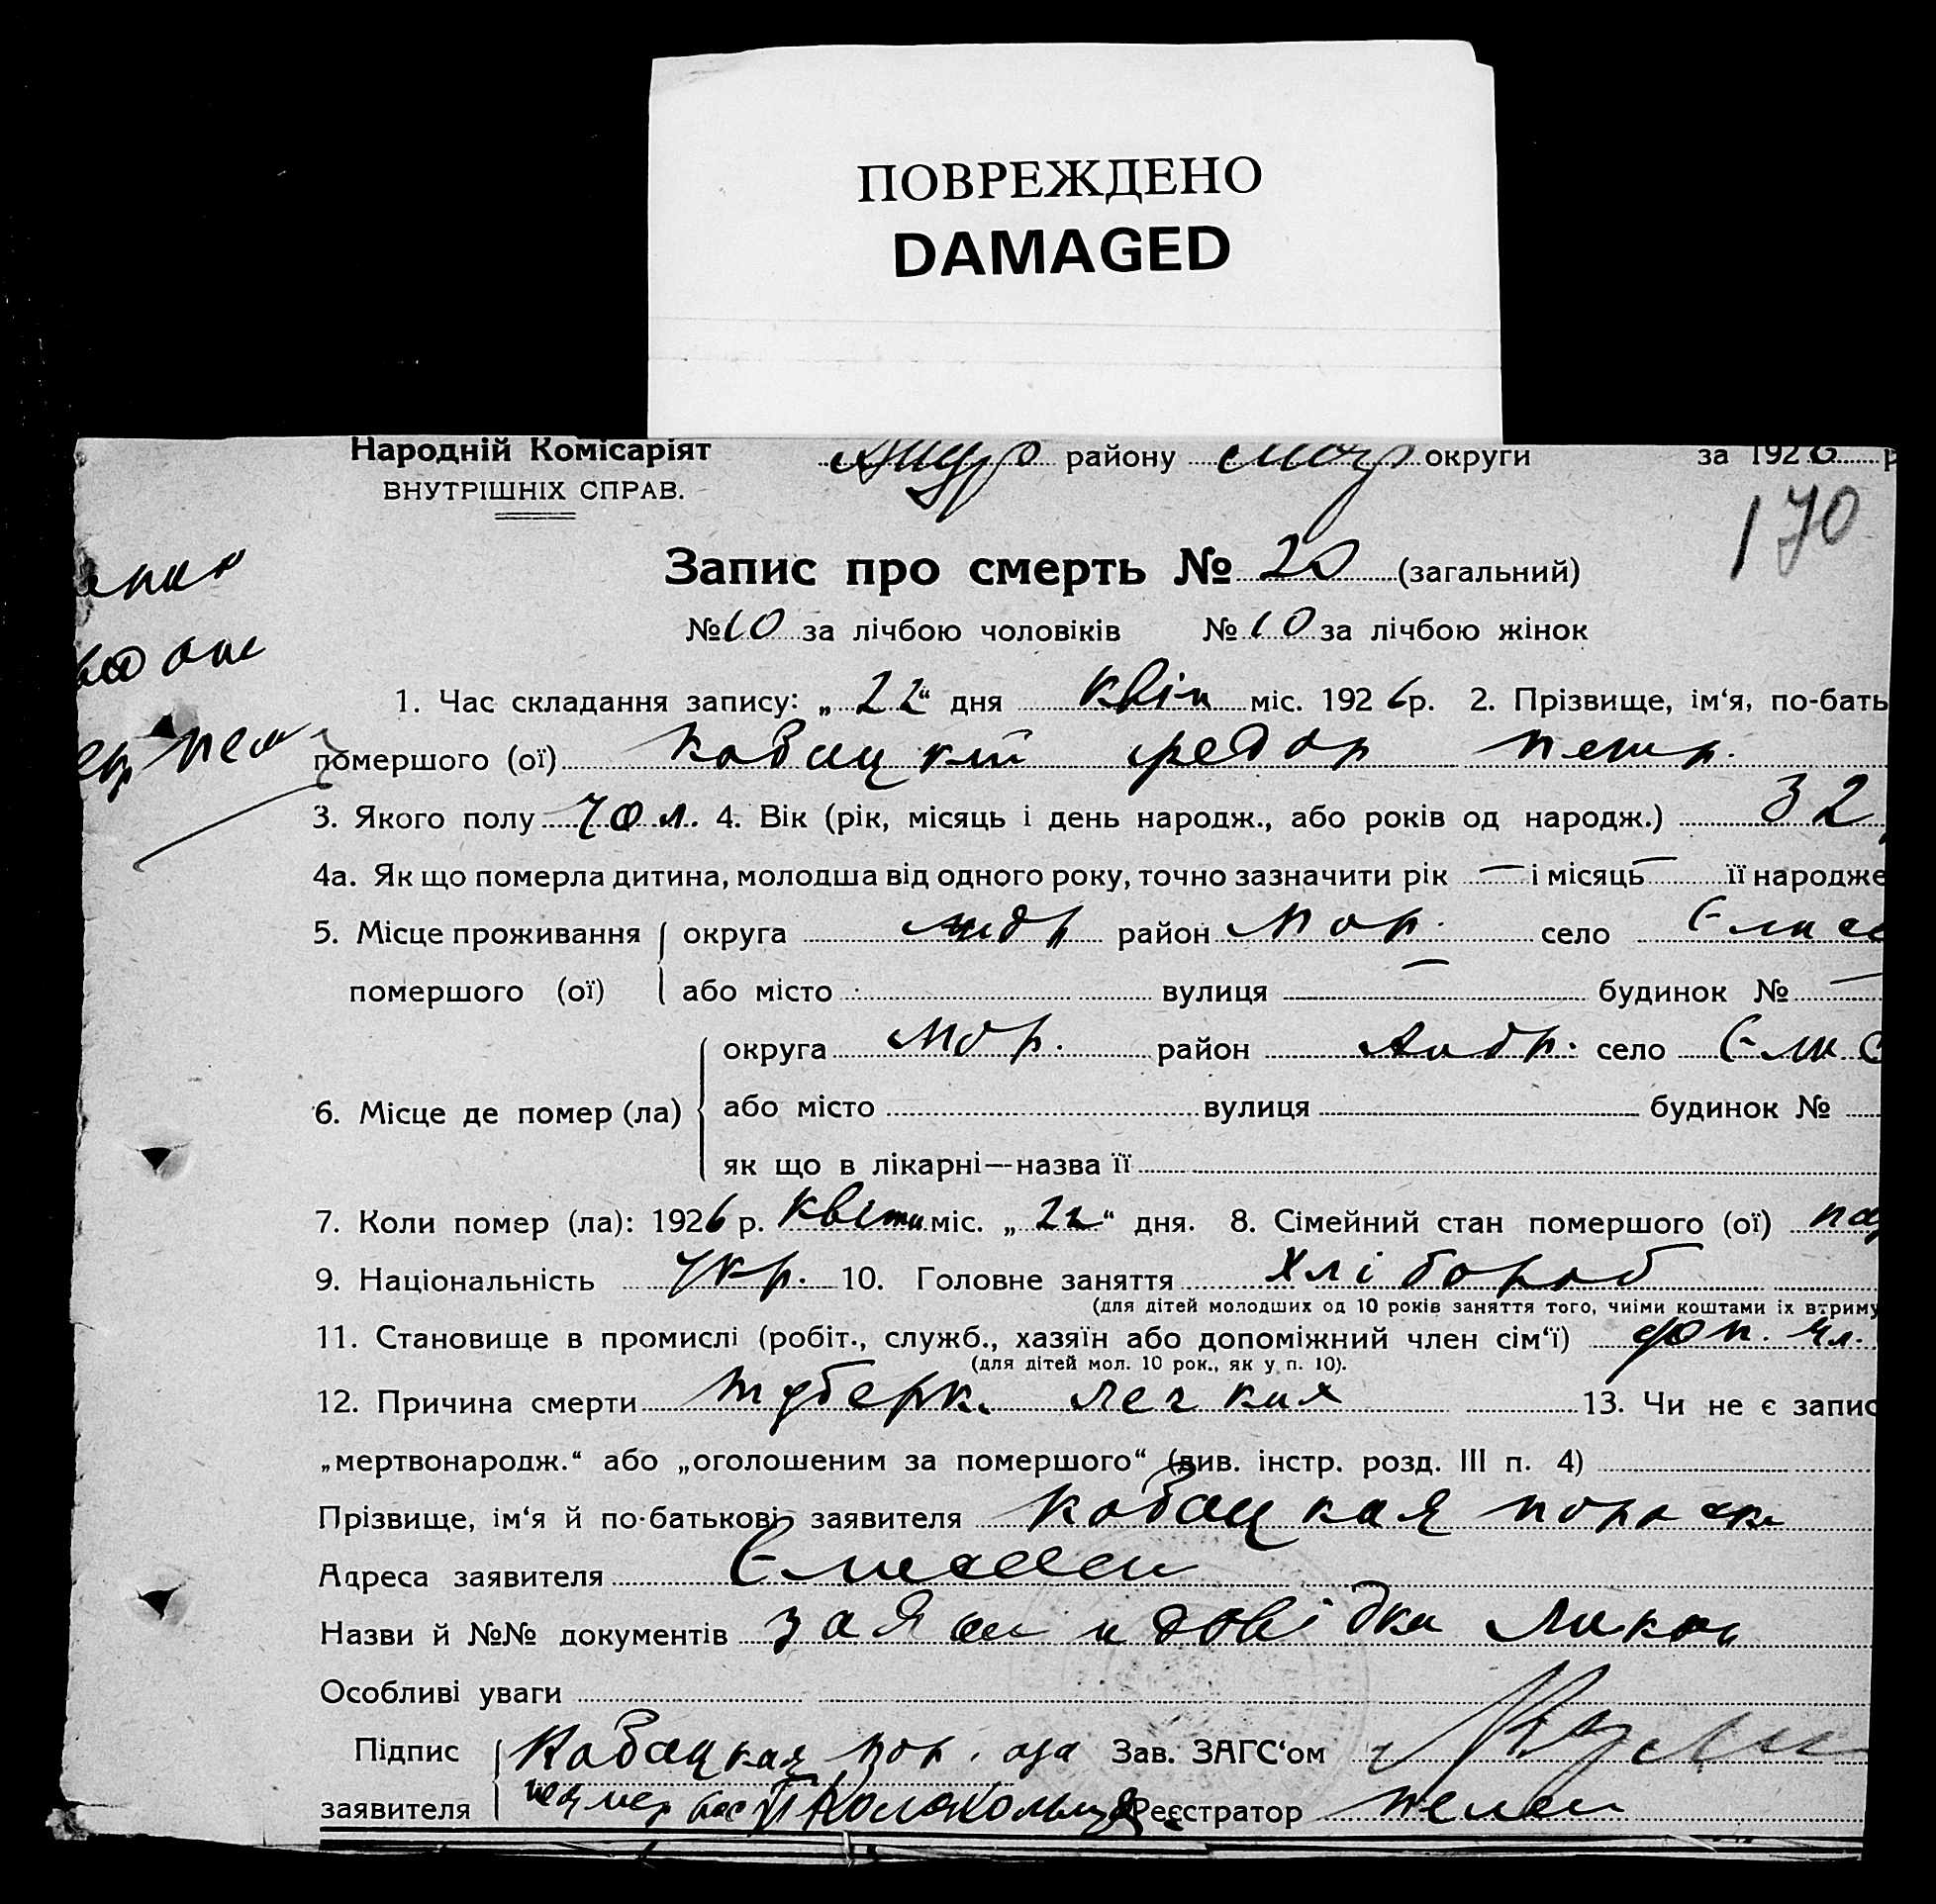 ПОВРЕЖДЕНО
DAMAGED
Народній Комісаріят району округи за 1926 р
ВНУТРІШНІХ СПРАВ.
170
Запис про смерть № 20 (загальний)
№ 10 за лічбою чоловіків № 10 за лічбою жінок
1. Час складання запису: „ 22 “ дня квіт міс. 1926 р. 2. Прізвище, ім‘я, по-бать
помершого (ої) Кобацкій Федор Петр.
3. Якого полу чол. 4. Вік (рік, місяць і день народж., або років од народж.) 32
4а. Як що померла дитина, молодша від одного року, точно зазначити рік — і місяць — її народже
5. Місце проживання округа район село Єлисе
помершого (ої) або місто вулиця — будинок № —
округа район село Єлис
6. Місце де помер (ла) або місто вулиця будинок №
як що в лікарні—назва її
7. Коли помер (ла): 1926 р. квітн міс. „ 22 “ дня. 8. Сімейний стан помершого (ої)
9. Національність укр. 10. Головне заняття хлібороб
(для дітей молодших од 10 років заняття того, чиїми коштами їх втриму
11. Становище в промислі (робіт., служб., хазяїн або допоміжний член сім‘ї) доп. чл.
(для дітей мол. 10 рок., як у п. 10).
12. Причина смерти туберк. легких 13. Чи не є запис
„мертвонародж.“ або „оголошеним за помершого“ (див. інстр. розд. III п. 4)
Прізвище, ім‘я й по-батькові заявителя Кобацкая
Адреса заявителя
Назви й №№ документів и довідка
Особливі уваги
Підпис Кобацкая Зав. ЗАГС‘ом
заявителя Реєстратор